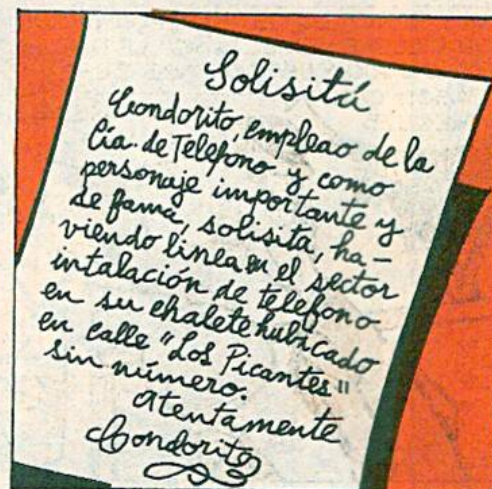 Solisitú
Condorito, empleao de la
Cía. de Telefono y como
personaje importante y
de fama, solisita, ha-
viendo linea en el sector
intalación de télefono
en su chalete hubicado
en calle "Los Picantes"
sin número.
Atentamente
Condorito